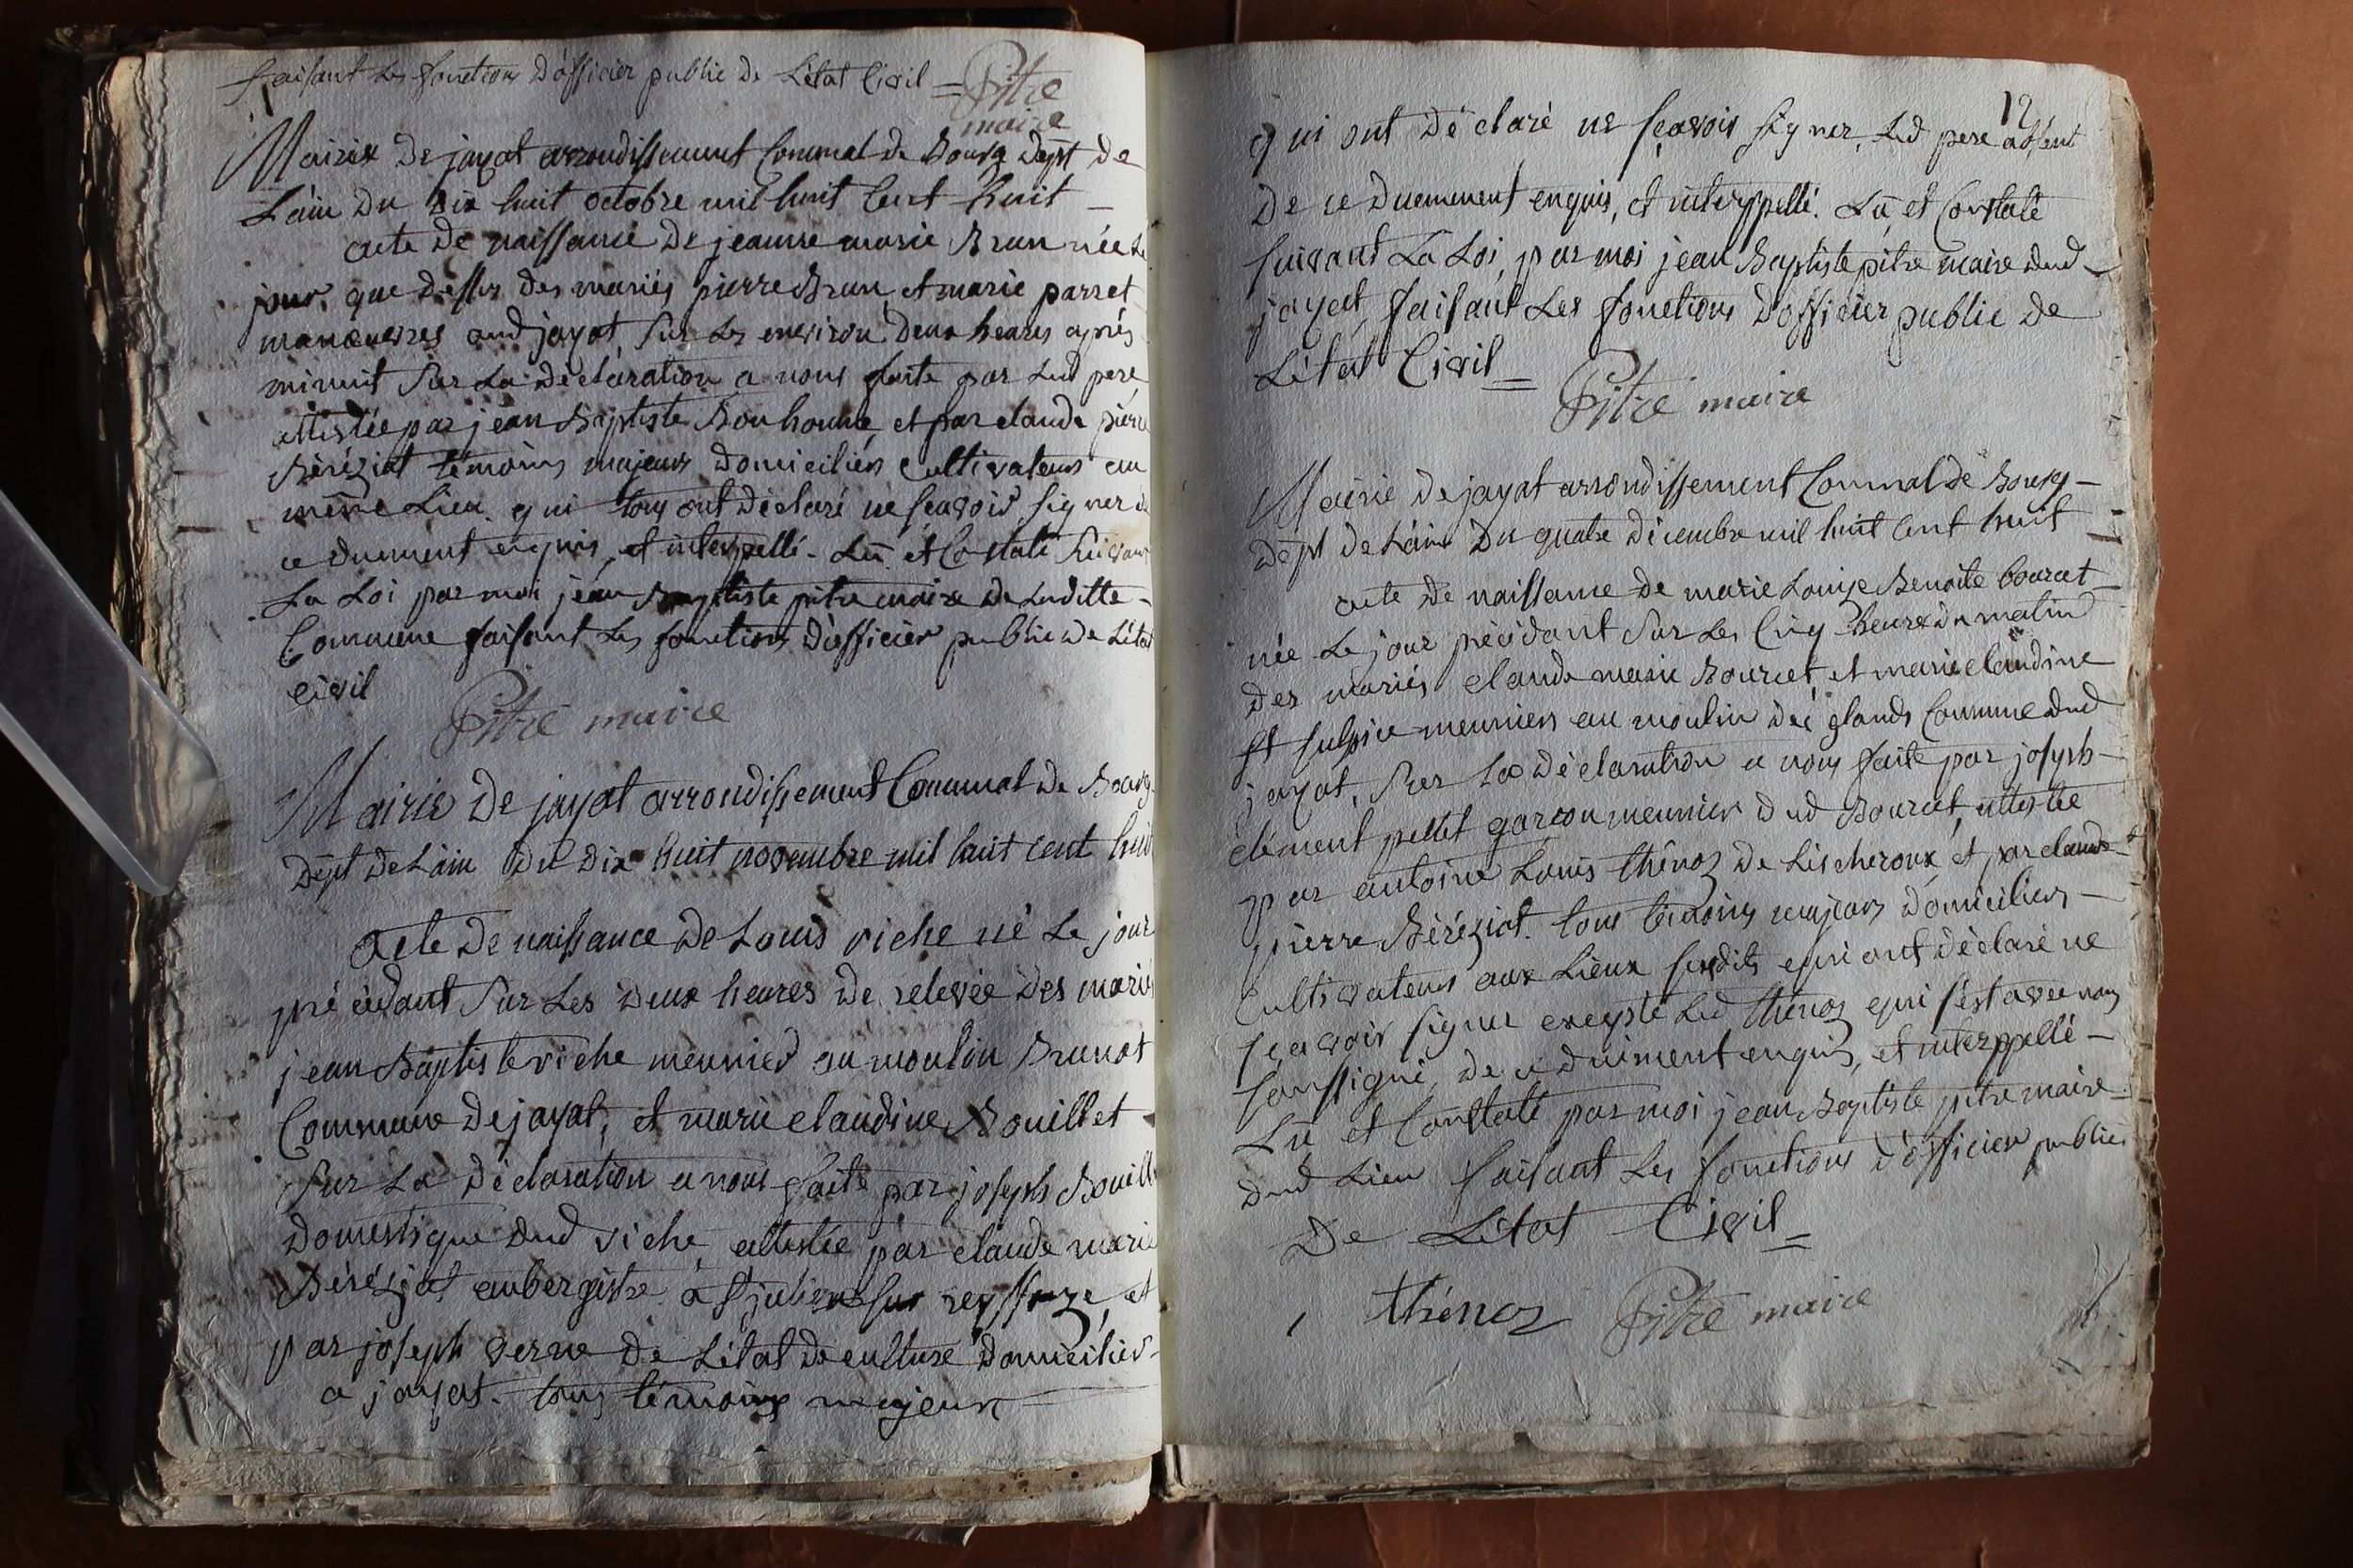 faisant les fonctions d'officier public de L'état Civil = Pitre
maire
Mairie De jayat arrondissement Communal de Bourg Dept de
L'ain Du Dix huit octobre mil huit Cent huit —
acte de naissance de jeanne marie Brun née Le
jour que dessus des mariés pierre Brun et marie parret
manœuvres aud jayat, sur les environ deux heures après
minuit sur La déclaration a nous faite par Led pere
attestée par jean Baptiste Bonhomme, et par claude pierre
Béréziat témoins majeurs domiciliés cultivateurs au
même Lieu qui tous ont déclaré ne sçavoir signer de
ce duement enquis, et interpellé. Lû et Constaté suivant
La Loi par moi jean Baptiste pitre maire de Laditte —
Commune faisant les fonctions d'officier public de L'état
civil
Pitre maire
Mairie De jayat arrondissement Communal de Bourg
Dept de L'ain Du Dix huit novembre mil huit cent huit
acte De naissance de Louis riche né Le jour
précédant sur Les deux heures de relevée des mariés
jean Baptiste riche meunier au moulin Brunet
Commune de jayat, et marie claudine Bouillet
sur La déclaration a nous faite par joseph Bouill
domestique dud riche, attestée par claude marie
Béréziat aubergiste a St julien sur reyssouze, et
par joseph verne de L'état de culture domiciliés
a jayat. tous témoins majeurs
12
qui ont déclaré ne sçavoir signer, Led pere absent
de ce duemment enquis, et interppellé. Lû et Constaté
suivant La Loi, par moi jean Baptiste pitre maire dud
jayat, faisant Les fonctions d'officier public de
L'état Civil =
Pitre maire
Mairie de jayat arrondissement Communal de Bourg —
Dept de L'ain Du quatre décembre mil huit cent huit
acte de naissance de marie Louise Benoite bourcet
née Le jour précédant sur Les Cinq heures du matin
des mariés claude marie Bourcet, et marie claudine
St sulpice meuniers au moulin des glands Commune dud
jayat, sur La déclaration a nous faite par joseph —
clément pellet garçon meunier dud Bourcet, attestée
par antoine Louis thénoz de Lescheroux, et par claude
pierre Béréziat. tous témoins majeurs domiciliés —
Cultivateurs aux Lieux susdits qui ont déclaré ne
sçavoir signer excepté Led thénoz qui s'est avec nous
soussigné, de ce duiment enquis, et interppellé —
Lû et Constaté par moi jean Baptiste pitre maire
dud Lieu faisant Les fonctions d'officier public
De L'état Civil =
thénoz Pitre maire